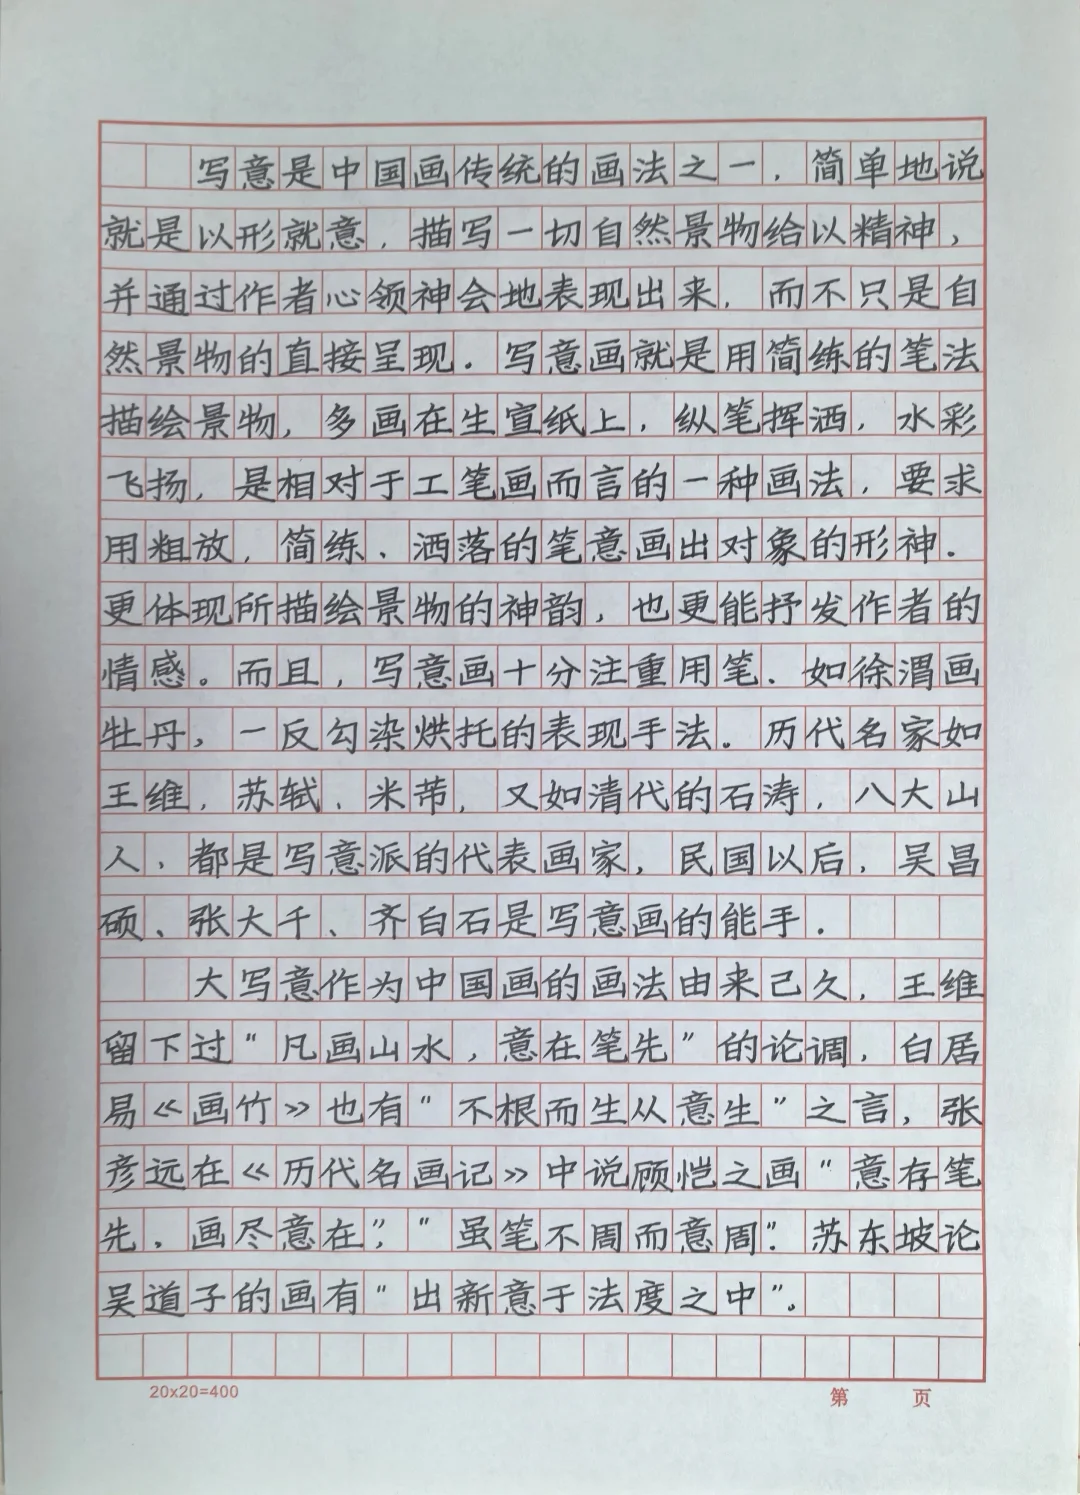 写意是中国画传统的画法之一，简单地说
就是以形就意，描写一切自然景物给以精神，
并通过作者心领神会地表现出来，而不只是自
然景物的直接呈现．写意画就是用简练的笔法
描绘景物，多画在生宣纸上，纵笔挥洒，水彩
飞扬，是相对于工笔画而言的一种画法，要求
用粗放，简练、洒落的笔意画出对象的形神．
更体现所描绘景物的神韵，也更能抒发作者的
情感。而且，写意画十分注重用笔．如徐渭画
牡丹，一反勾染烘托的表现手法。历代名家如
王维，苏轼、米芾，又如清代的石涛，八大山
人，都是写意派的代表画家，民国以后，吴昌
硕、张大千、齐白石是写意画的能手．
大写意作为中国画的画法由来己久，王维
留下过“凡画山水，意在笔先”的论调，白居
易《画竹》也有“不根而生从意生”之言，张
彦远在《历代名画记》中说顾恺之画“意存笔
先，画尽意在”，“虽笔不周而意周”．苏东坡论
吴道子的画有“出新意于法度之中”。
20x20=400
第 页